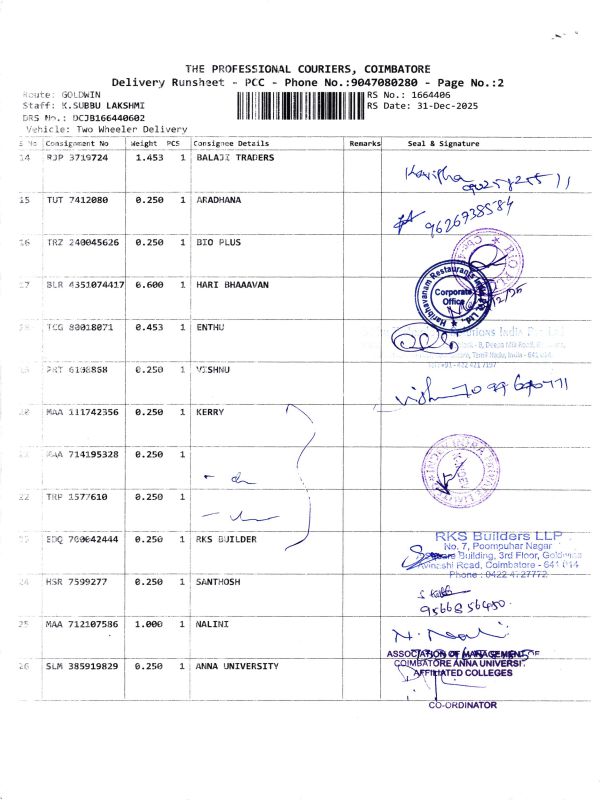 THE PROFESSIONAL COURIERS, COIMBATORE
Delivery Runsheet - PCC - Phone No.:9047080280 - Page No.:2
Route: GOLDWIN
RS No.: 1664406
Staff: K.SUBBU LAKSHMI
RS Date: 31-Dec-2025
DRS No.: DCJB166440602
Vehicle: Two Wheeler Delivery
S No Consignment No Weight PCS Consignee Details Remarks Seal & Signature
14 RJP 3719724 1.453 1 BALAJI TRADERS
15 TUT 7412080 0.250 1 ARADHANA
9626738584
16 TRZ 240045626 0.250 1 BIO PLUS
BIO PLUS
17 BLR 4351074417 0.600 1 HARI BHAAAVAN
Haribhavanam Restaurants India Pvt. Ltd.
Corporate
Office
TCG 80018071 0.453 1 ENTHU
India Pvt Ltd
Tamil Nadu, India - 641 014
6108868 0.250 1 VISHNU
MAA 111742356 0.250 1 KERRY
714195328 0.250 1
22 TRP 1577610 0.250 1
EDQ 700042444 0.250 1 RKS BUILDER
RKS Builders LLP
No. 7, Poompuhar Nagar
Building, 3rd Floor, Goldwins
Avinashi Road, Coimbatore - 641 014
Phone : 0422 4727772
24 HSR 7599277 0.250 1 SANTHOSH
9566856450
25 MAA 712107586 1.000 1 NALINI
26 SLM 385919829 0.250 1 ANNA UNIVERSITY
ASSOCIATION OF MANAGEMENT OF
COIMBATORE ANNA UNIVERSI
AFFILIATED COLLEGES
CO-ORDINATOR